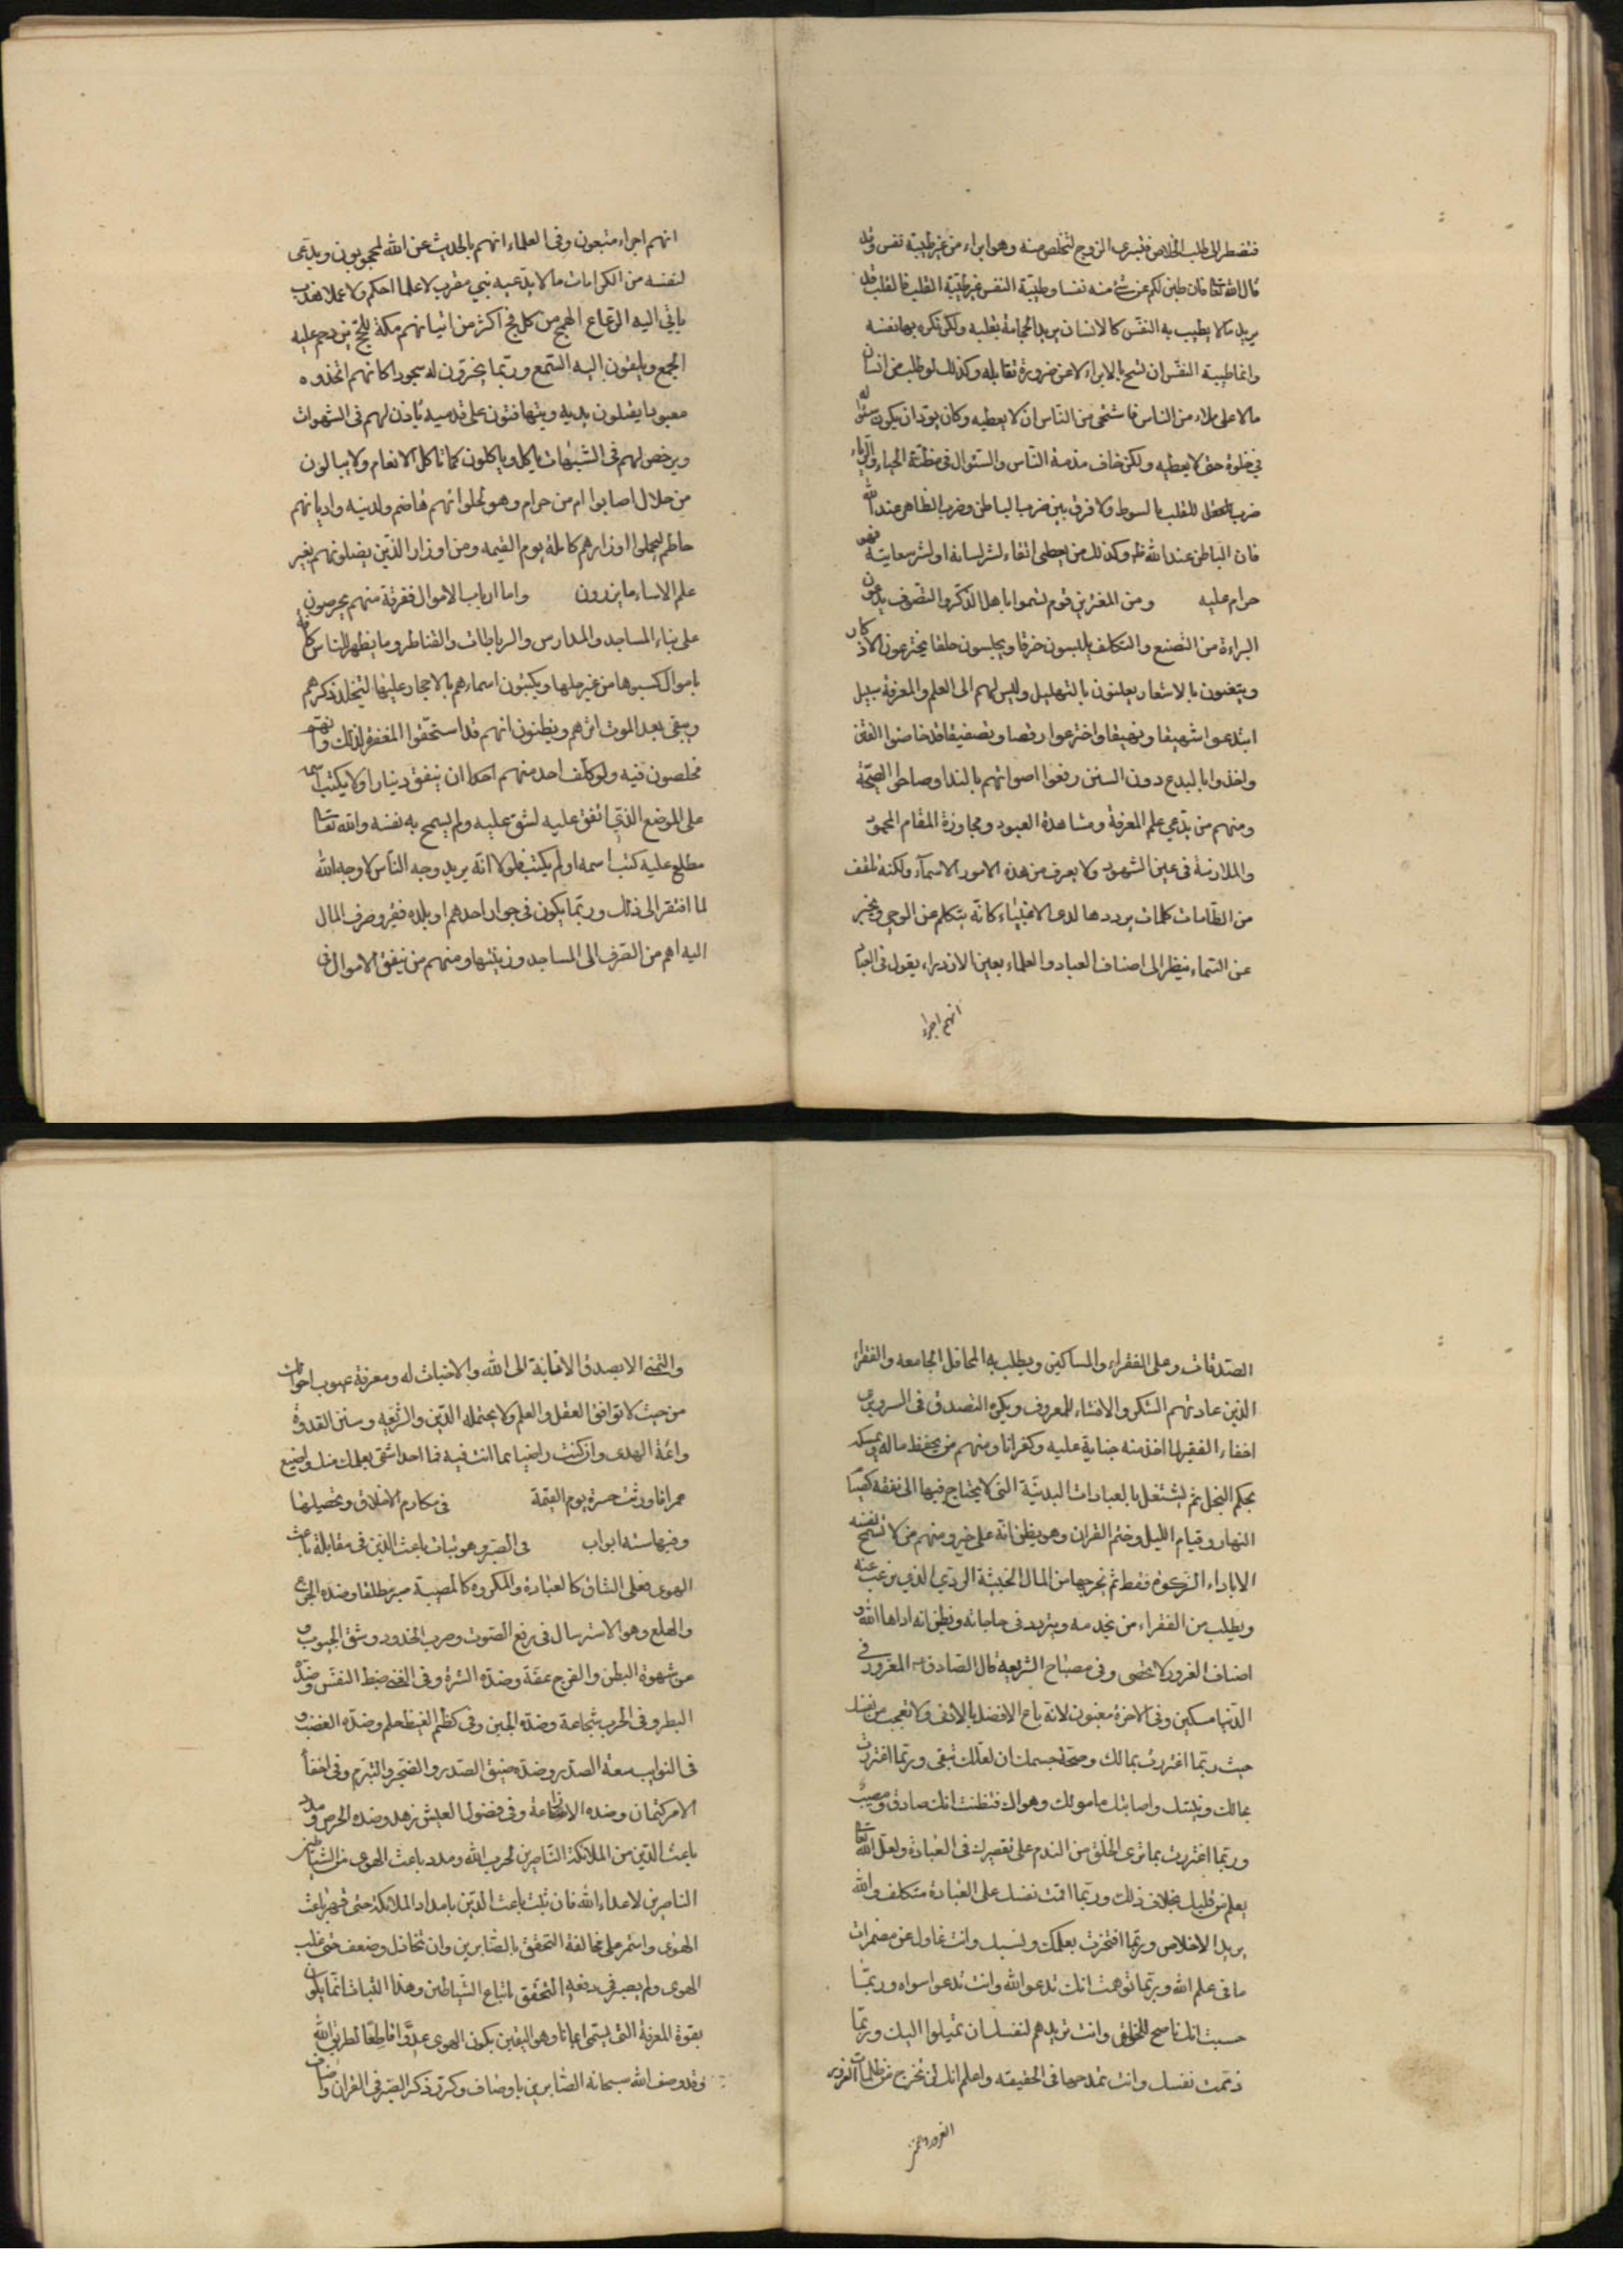 فتضطر الى طلب الخلاص فتبرئ الزوج لتخلص منه وهو ابراء من غير طيبة نفس وقد
قال الله تعالى فان طبن لكم عن شئ منه نفسا وطيبة النفس غير طيبة القلب فالقلب قد
يريد ما لا يطيب به النفس كالانسان يريد الحجامة بقلبه ولكن تكره بها نفسه
وانما طيبة النفس ان تسمح بالابراء لا عن ضرورة تقابله وكذلك لو طلب من انسان
مالا على ملاء من الناس فاستحى من الناس ان لا يعطيه وكان يود ان يكون سئواله
في خلوة حتى لا يعطيه ولكن خاف مذمة الناس والسئوال في مظنة الحياء والرياء
ضرب للقلب بالسوط ولا فرق بين ضرب الباطن وضرب الظاهر عند الله
فان الباطن عند الله ظاهر وكذلك من يعطى اتقاء لشر لسانه او لشر سعايته فهو
حرام عليه ومن المغترين قوم تسموا باهل الذكر والتصوف يدعون
البراءة من التصنع والتكلف يلبسون خرقا ويجلسون حلقا يخترعون الاذكار
ويتغنون بالاشعار يعلنون بالتهليل وليس لهم الى العلم والمعرفة سبيل
ابتدعوا شهيقا ونهيقا واخترعوا رقصا وتصفيقا قد خاضوا الفتن
واخذوا بالبدع دون السنن رفعوا اصواتهم بالندا وصاحوا الصيحة
ومنهم من يدعي علم المعرفة ومشاهدة المعبود ومجاوزة المقام المحمود
والملازمة في عين الشهود ولا يعرف من هذه الامور الا الاسماء ولكنه تلقف
من الطامات كلمات يرددها لدى الاغبياء كانه يتكلم عن الوحي ويخبر
عن السماء ينظر الى اصناف العباد والعلماء بعين الازدراء يقول في العباد
انهم اجراء
انهم اجراء متعبون وفي العلماء انهم بالحديث عن الله لمحجوبون ويدعى
لنفسه من الكرامات ما لا يدعيه نبي مقرب لا علما احكم ولا عملا هذب
يأتي اليه الرعاع الهمج من كل فج اكثر من اتيانهم مكة للحج يزدحم عليه
الجمع ويلقون اليه السمع وربما يخرون له سجودا كانهم اتخذوه
معبودا يقبلون يديه ويتهافتون على قدميه يأذن لهم في الشهوات
ويرخص لهم في الشبهات يأكل ويأكلون كما تأكل الانعام ولا يبالون
من حلال اصابوا ام من حرام وهو لحلوائهم هاضم ولدينه واديانهم
حاطم ليحملوا اوزارهم كاملة يوم القيمة ومن اوزار الذين يضلونهم بغير
علم الا ساء ما يزرون واما ارباب الاموال ففرقة منهم يحرصون
على بناء المساجد والمدارس والرباطات والقناطر وما يظهر للناس كافة
باموال كسبوها من غير حلها ويكتبون اسماءهم بالاحجار عليها ليتخلد ذكرهم
ويبقى بعد الموت اثرهم ويظنون انهم قد استحقوا المغفرة لذلك وانهم
مخلصون فيه ولو كلف احد منهم احدا ان ينفق دينارا ولا يكتب اسمه
على الموضع الذي انفق عليه لشق عليه ولم يسمح به نفسه والله تعالى
مطلع عليه كتب اسمه او لم يكتب فلولا انه يريد وجه الناس لا وجه الله
لما افتقر الى ذلك وربما يكون في جوار احدهم او بلده فقير وصرف المال
اليه اهم من الصرف الى المساجد وزينتها ومنهم من ينفق الاموال في
الصدقات وعلى الفقراء والمساكين ويطلب به المحافل الجامعه والفقراء
الذين عادتهم الشكر والافشاء للمعروف ويكره التصدق في السر ويرى
اخفاء الفقير لما اخذ منه جناية عليه وكفرانا ومنهم من يحفظ ماله يمسكه
بحكم البخل ثم يشتغل بالعبادات البدنية التي لا يحتاج فيها الى نفقة كصيام
النهار وقيام الليل وختم القران وهو يظن انه على خير ومنهم من لا تسمح نفسه
الا باداء الزكوة فقط ثم يخرجها من المال الخبيثة الردي الذي يرغب عنه
ويطلب من الفقراء من يخدمه ويتردد في حاجاته ويظن انه اداها لله و
اصناف الغرور لا تحصى وفي مصباح الشريعة قال الصادق المغرور في
الدنيا مسكين وفي الاخرة مغبون لانه باع الافضل بالادنى ولا تعجب من نفسك
حيث ربما اغتررت بمالك وصحة جسمك ان لعلك تبقى وربما اغتررت
بمالك ونيتك واصابتك مامولك وهواك فتظنت انك صادق ومصيب
وربما اغتررت بما ترى الخلق من الندم على تقصيرك في العبادة ولعل الله تعالى
يعلم من قلبك بخلاف ذلك وربما اقمت نفسك على العبادة متكلفا والله
يريد الاخلاص وربما افتخرت بعلمك ونسبك وانت غافل عن مضمرات
ما في علم الله وربما توهمت انك تدعو الله وانت تدعوا سواه وربما
حسبت انك ناصح للخلق وانت تريدهم لنفسك ان تميلوا اليك وربما
ذممت نفسك وانت تمدحها في الحقيقة واعلم انك لن تخرج من ظلمات الغرور
الغرور والتمني
والتمني الا بصدق الانابة الى الله والاخبات له ومعرفة عيوب احوالك
من حيث لا توافق العقل والعلم ولا يحتمله الدين والشريعة وسنن القدوة
وائمة الهدى وان كنت راضيا بما انت فيه فما احد اشقى بعلمك منك واضيع
عمرا فاورثت حسرة يوم القيمة في مكارم الاخلاق وتحصيلها
وفيها ستة ابواب في الصبر وهو ثبات باعث الدين في مقابلة باعث
الهوى فعلى الشاق كالعبادة والمكروه كالمصيبة صبر مطلقا وضده الجزع
والهلع وهو الاسترسال في رفع الصوت وضرب الخدود وشق الجيوب و
عن شهوة البطن والفرج عفة وضده الشره وفي الغنى ضبط النفس وضده
البطر وفي الحرب شجاعة وضده الجبن وفي كظم الغيظ حلم وضده الغضب و
في النوايب سعة الصدر وضده ضيق الصدر والضجر والتبرم وفي اخفاء
الامر كتمان وضده الاذاعة وفي فضول العيش زهد وضده الحرص ومدد
باعث الدين من الملائكة الناصرين لحزب الله ومدد باعث الهوى من الشياطين
الناصرين لاعداء الله فان ثبت باعث الدين بامداد الملائكة حتى قهر باعث
الهوى واستمر على مخالفة التحقق بالصابرين وان تخاذل وضعف حتى غلب
الهوى ولم يصبر في دفعه التحقق باتباع الشياطين وهذا الثبات انما يكون
بقوة المعرفة التي يسمى ايمانا وهو اليقين بكون الهوى عدوا قاطعا لطريق الله
وقد وصف الله سبحانه الصابرين باوصاف وكرر ذكر الصبر في القران واضاف